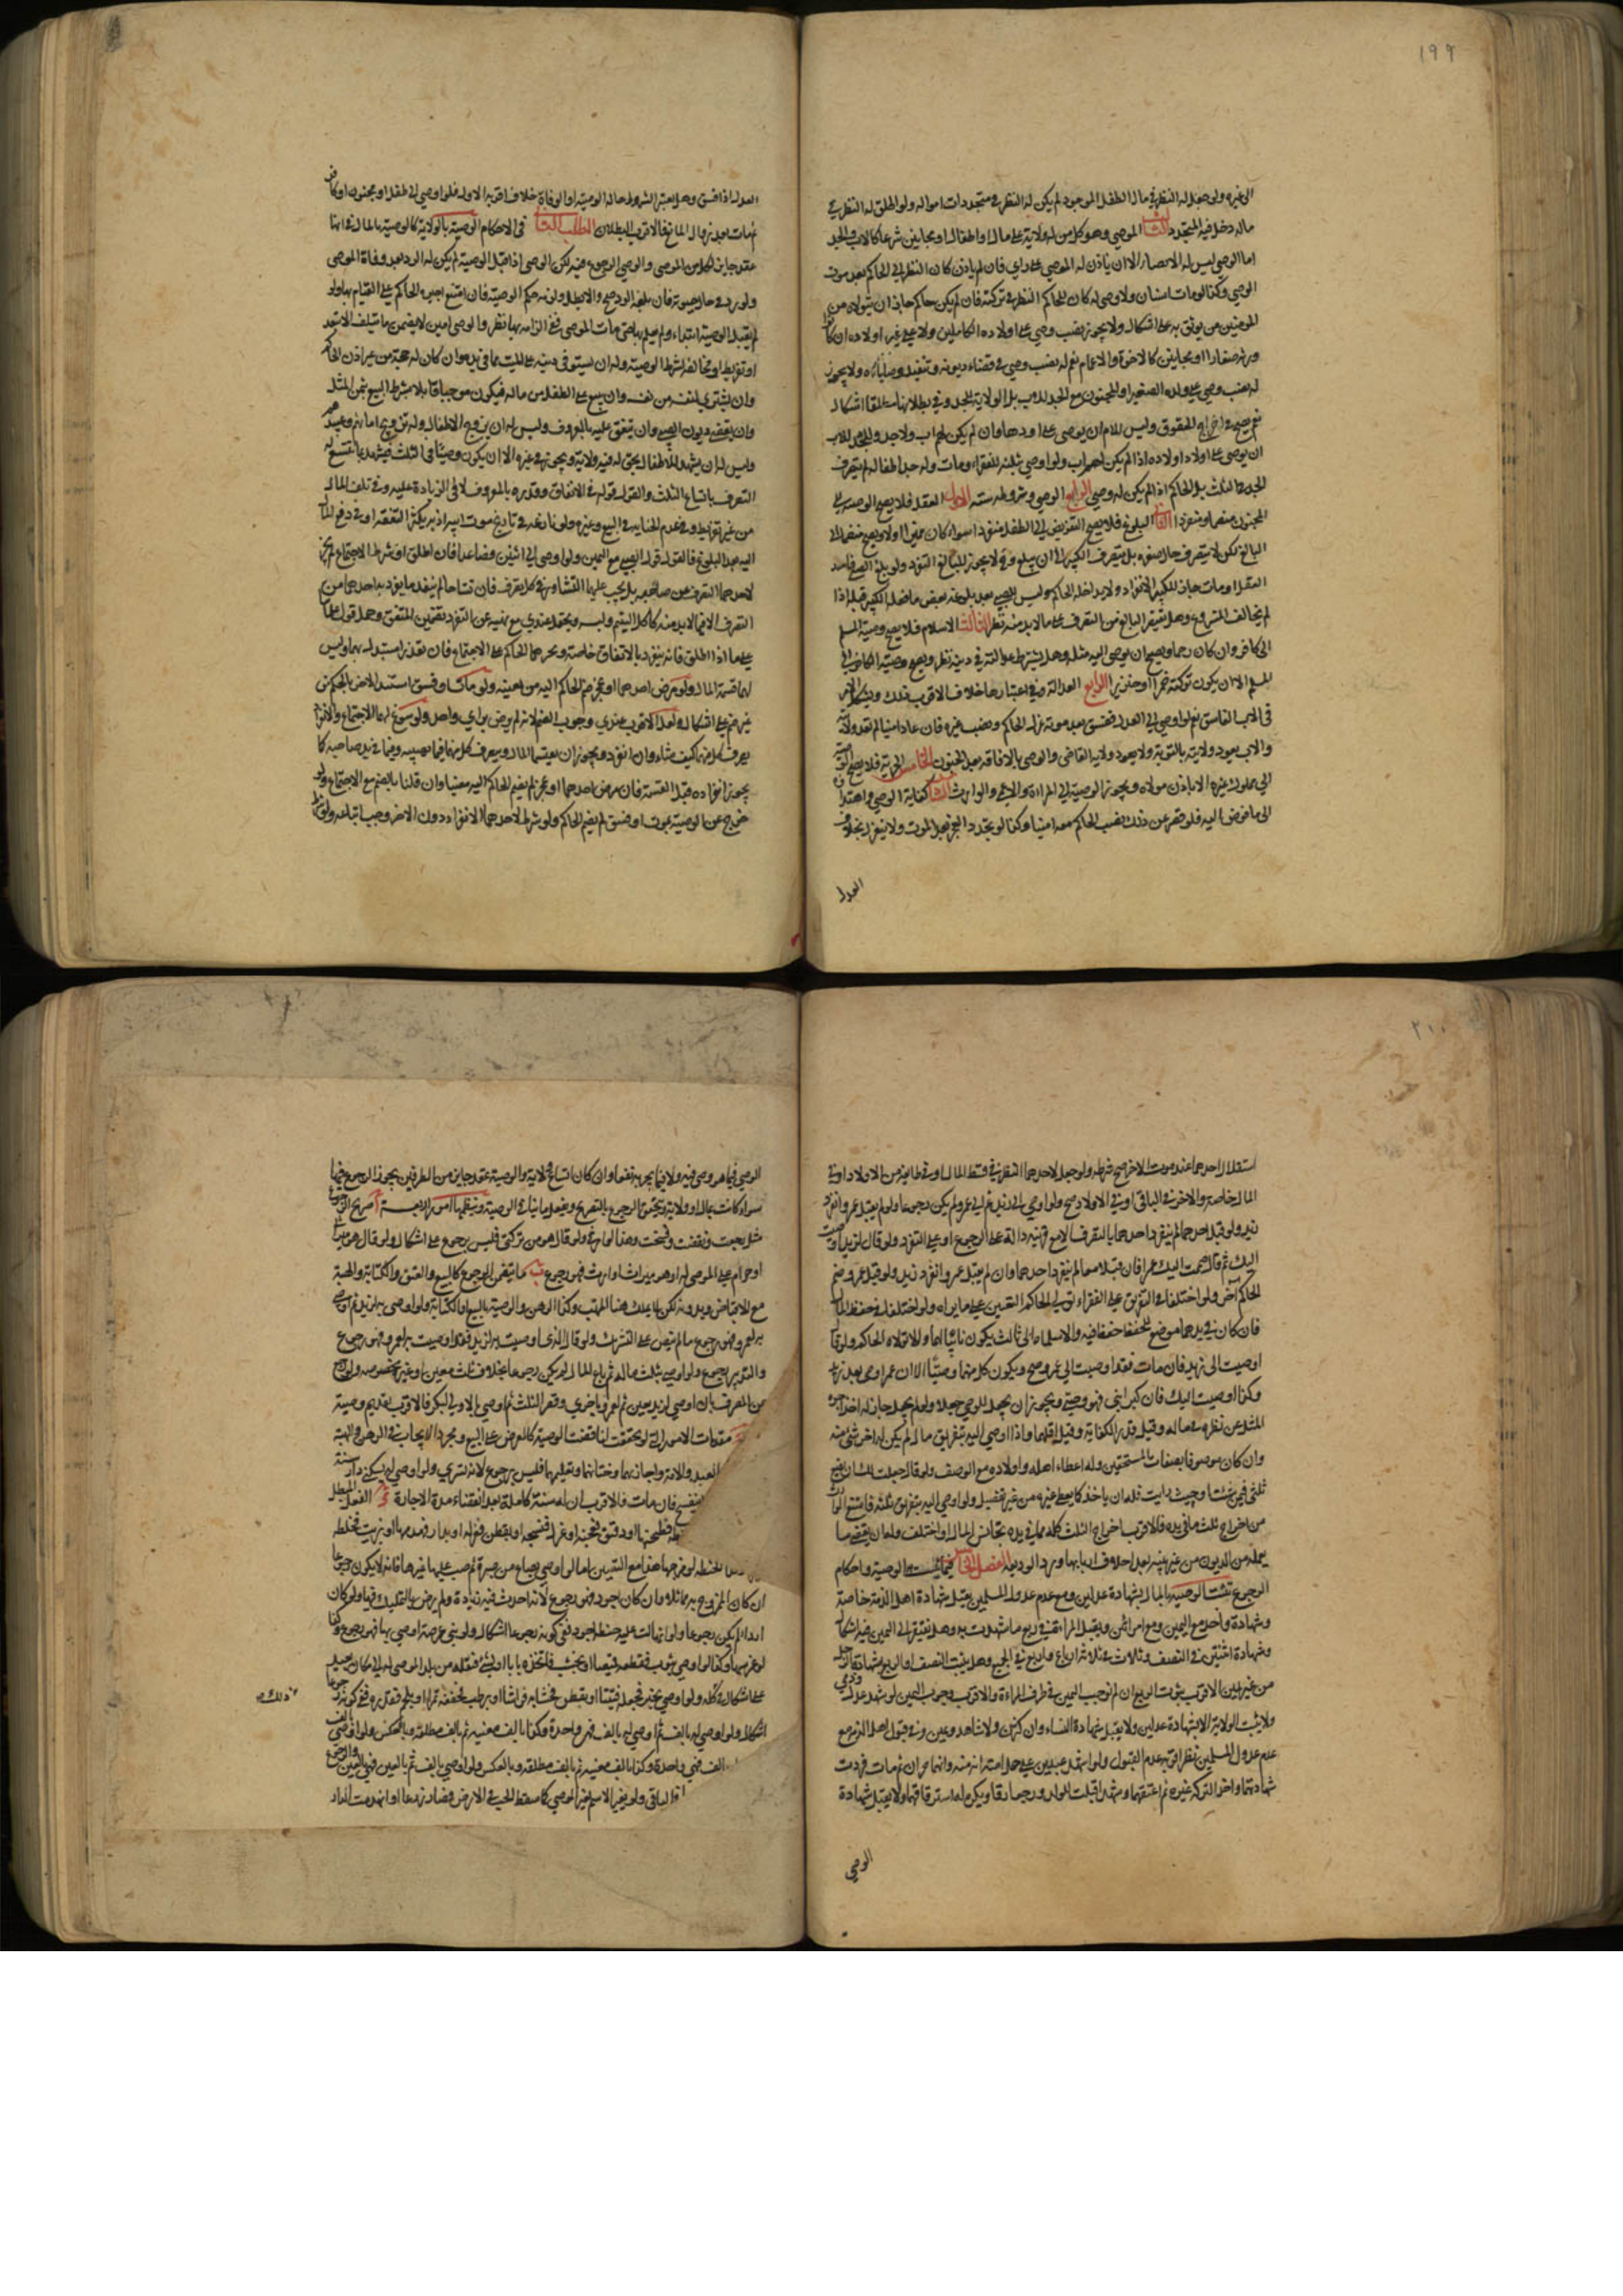 ١٩٩
الى غيره ولو جعل له النظر في مال الطفل الموجود لم يكن له النظر في متجددات امواله ولو اطلق له النظر في
ماله دخل فيه المتجدد الثالث الموصي وهو كل من له ولاية على مال او اطفال او مجانين شرعا كالاب والجد
اما الوصي ليس له الايصاء الا ان ياذن له الموصي على راي فان لم ياذن كان النظر الى الحاكم بعد موت
الوصي وكذا لو مات انسان ولا وصي له كان للحاكم النظر في تركته فان لم يكن حاكم جاز ان يتولاه من
المؤمنين من يوثق به على اشكال ولا يجوز نصب وصي على اولاده الكاملين ولا على غير اولاده ان كانوا
ورثة صغارا او مجانين كالاخوة والاعمام نعم له نصب وصي في قضاء ديونه وتنفيذ وصاياه ولا يجوز
له نصب وصي على ولده الصغير او المجنون مع الجد للاب بل الولاية للجد وفي بطلانها مطلقا اشكال
نعم يصح في اخراج الحقوق وليس للام ان يوصي على اولادها وان لم يكن لهم اب ولا جد ويجوز للاب
ان يوصي على اولاد اولاده اذا لم يكن لهم اب ولو اوصي بثلثه للفقراء ومات وله جد اطفاله لم يتصرف
الجد في الثلث بل الحاكم اذا لم يكن له وصي الرابع الوصي وشروطه ستة الاول العقل فلا يصح الوصية الى
المجنون منضما ومنفردا الثاني البلوغ فلا يصح التفويض الى الطفل منفردا سواء كان مميزا او لا ويصح منضما الى
البالغ لكن لا يتصرف حال صغره بل يتصرف الكبير الى ان يبلغ وح لا يجوز للبالغ التفرد ولو بلغ الصبي فاسد
العقل او مات جاز للكبير الانفراد ولا يداخله الحاكم وليس للصبي بعد بلوغه نقض ما فعله الكبير قبله اذا
لم يخالف المشروع وهل يفتقر البالغ من التصرف على ما لا بد منه نظر الثالث الاسلام فلا يصح وصية المسلم
الى كافر وان كان رحما ويصح ان يوصي اليه مثله وهل يشترط عدالته في دينه نظر ويصح وصية الكافر الى
المسلم الا ان يكون تركته خمرا او خنزيرا الرابع العدالة وفي اعتبارها خلاف الاقرب ذلك ويشكل الامر
في الاب الفاسق نعم لو اوصي الى العدل ففسق بعد موته عزله الحاكم ونصب غيره فان عاد امينا لم تعد ولايته
والاب يعود ولايته بالتوبة ولا يعود ولاية القاضي والوصي بالافاقة بعد الجنون الخامس الحرية فلا يصح الوصية
الى مملوك غيره الا باذن مولاه ويجوز الوصية الى المراة والاعمى والوارث السادس كفاية الوصي واهتداؤه
الى ما فوض اليه فلو قصر عن ذلك نصب الحاكم معه امينا وكذا لو تجدد العجز بعد الموت ولا ينعزل بخلاف
العدل
العدل اذا فسق وهل يعتبر الشروط حالة الوصية او الوفاة خلاف اقربه الاول فلو اوصي الى طفل او مجنون او كافر
ثم مات بعد زوال المانع فالاقرب البطلان المطلب الثاني في الاحكام الوصية بالولاية كالوصية بالمال في انها
عقد جايز لكل من الموصي والوصي الرجوع فيه لكن الوصي اذا قبل الوصية لم يكن له الرد بعد وفاة الموصي
ولو رد في حال حيوته فان بلغه الرد صح والا بطل ولزمه حكم الوصية فان امتنع اجبره الحاكم على القيام بها ولو
لم يقبل الوصية ابتداء ولم يعلم بها حتى مات الموصي ففي الزامه بها نظر والوصي امين لا يضمن ما يتلف الا بتعد
او تفريط او مخالفة لشرط الوصية وله ان يستوفي دينه على الميت مما في يده وان كان له حجة من غير اذن الحاكم
وان يشتري لنفسه من نفسه وان يبيع على الطفل من ماله فيكون موجبا قابلا بشرط البيع بثمن المثل
وان يقضي ديون الصبي وان ينفق عليه بالمعروف وليس له ان يزوج الاطفال وله تزويج امائهم وعبيدهم
وليس له ان يشهد للاطفال بحق له فيه ولاية ويجوز في غيره الا ان يكون وصيا في الثلث فيشهد بما يتسع به
التصرف باتساع الثلث والقول قوله في الانفاق وقدره بالمعروف لا في الزيادة عليه وفي تلف المال
من غير تفريط وفي عدم الخيانة في البيع وغيره ولو نازعه في تاريخ موت ابيه اذ به يكثر النفقة او في دفع المال
اليه بعد البلوغ فالقول قول الصبي مع اليمين ولو اوصي الى اثنين فصاعدا فان اطلق او شرط الاجتماع لم يجز
لاحدهما التصرف عن صاحبه بل يجب عليهما التشاور في كل تصرف فان تشاحا لم ينفذ ما يتفرد به احدهما من
التصرف الا فيما لا بد منه كاكل اليتيم ولبسه ويحتمل عندي مع نهيه عن التفرد تضمين المنفق وحمل قول علمائنا
على ما اذا اطلق فانه ينفرد بالانفاق خاصة ويجبرهما الحاكم على الاجتماع فان تعذر استبدل بهما وليس
لهما قسمة المال ولو مرض احدهما او عجز ضم الحاكم اليه من يعينه ولو مات او فسق استبد الاخر بالحكم من
غير ضم على اشكال ولعل الاقرب عندي وجوب الضم لانه لم يرض براي واحد ولو سوغ لهما الاجتماع والانفراد
تصرف كل منهما كيف شاء وان انفرد ويجوز ان يقتسما المال ويتصرف كل منهما فيما يصيبه وفيما في يد صاحبه كما
يجوز انفراده قبل القسمة فان مرض احدهما او عجز لم يضم الحاكم اليه معينا وان قلنا بالضم مع الاجتماع ولو
خرج عن الوصية بموت او فسق لم يضم الحاكم ولو شرط لاحدهما الانفراد دون الاخر وجب اتباعه ولو شرط
٢٠٠
استقلال احدهما عند موت الاخر صح شرطه ولو جعل لاحدهما النظر في قسط المال او في طائفة من الاولاد او في
المال خاصة والاخر في الباقي او في الاولاد صح ولو اوصي الى زيد ثم الى عمرو لم يكن رجوعا ولو لم يقبل عمرو انفرد
زيد ولو قبل احدهما لم ينفرد احدهما بالتصرف الا مع قرينة دالة على الرجوع او على التفرد ولو قال لزيد اوصيت
اليك ثم قال ضممت اليك عمرا فان قبلا معا لم ينفرد احدهما وان لم يقبل عمرو انفرد زيد ولو قبل عمرو ضم
الحاكم آخر ولو اختلفا في التفريق على الفقراء تولى الحاكم التعيين على ما يراه ولو اختلفا في حفظ المال
فان كان في يدهما موضع للحفظ حفظا فيه والا سلماه الى ثالث يكون نائبا لهما والا تولاه الحاكم ولو قال
اوصيت الى زيد فان مات فقد اوصيت الى عمرو صح ويكون كل منهما وصيا الا ان عمرا وصي بعد زيد
وكذا اوصيت اليك فان كبر ابني فهو وصيي ويجوز ان يجعل للوصي جعلا ولو لم يجعل جاز له اخذ اجرة
المثل عن نظره في ماله وقيل قدر الكفاية وقيل اقلهما واذا اوصي اليه بتفريق مال لم يكن له اخذ شئ منه
وان كان موصوفا بصفات المستحقين وله اعطاء اهله واولاده مع الوصف ولو قال جعلت لك ان تضع
ثلثي فيمن شئت او حيث رايت فله ان ياخذ كما يعطي غيره من غير تفضيل ولو اوصي اليه بتفريق ثلثه فامتنع الوارث
من اخراج ثلث ما في يده فالاقرب اخراج الثلث كله مما في يده تجانس المال او اختلف وله ان يقضي ما
يعلمه من الديون من غير بينة بعد احلاف اربابها ورد الوديعة الفصل الخامس فيما يثبت به الوصية واحكام
الرجوع تثبت الوصية بالمال بشهادة عدلين ومع عدم عدول المسلمين يقبل شهادة اهل الذمة خاصة
وشهادة واحد مع اليمين ومع امراتين ويقبل المراة في ربع ما شهدت به وهل يفتقر الى اليمين فيه اشكال
وشهادة اثنتين في النصف وثلاث في ثلاثة ارباع واربع في الجميع وهل يثبت النصف او الربع بشهادة رجل
من غير يمين الاقرب ثبوت الربع ان لم نوجب اليمين في طرف المراة والاقرب وجوب اليمين لو شهد عدل وذمي
ولا يثبت الولاية الا بشهادة عدلين ولا يقبل شهادة النساء وان كثرن ولا شاهد ويمين وفي قبول اهل الذمة مع
عدم عدول المسلمين نظر اقربه عدم القبول ولو اشهد عبدين على حمل امته انه منه وانهما حران ثم مات فردت
شهادتهما واخذ التركة غيره ثم اعتقهما وشهدا قبلت للولد ورجعا رقا ويكره له استرقاقهما ولا يقبل شهادة
الوصي
الوصي فيما هو وصي فيه ولا فيما يجر به نفعا وان كان اتساع ولاية والوصية عقد جايز من الطرفين يجوز الرجوع فيها
سواء كانت بمال او ولاية ويتحقق الرجوع بالتصريح وبفعل ما ينافي الوصية وينظمها امور اربعة آ صريح الرجوع
مثل رجعت ونقضت وفسخت وهذا لوارثي ولو قال هو من تركتي فليس برجوع على اشكال ولو قال هو ميراث
او حرام على الموصى له او هو ميراث او ارث فهو رجوع ب ما يتضمن الرجوع كالبيع والعتق والكتابة والهبة
مع الاقباض وبدونه لكن
به لعمرو فهو رجوع ما لم ينص على التشريك ولو قال الذي اوصيت به لزيد فقد اوصيت به لعمرو فهو رجوع
والتدبير رجوع ولو اوصى بثلث ماله ثم باع المال لم يكن رجوعا بخلاف ثلث معين او غير
مقدمات الامور التي لو تحققت لناقضت الوصية كالعرض على البيع ومجرد الايجاب في الرهن والهبة
العبد والامة واجازتهما وختانهما وتعليمهما فليس برجوع لانه تسري ولو اوصى له بسكنى دار سنة
فان مات فالاقرب ان له سنة كاملة بعد انقضاء مدة الاجارة د الفعل المبطل
او دقيق فعجنه او غزل فنسجه او بقطن فغزله او بدار فهدمها او بزيت فخلطه
ان كان الممزوج به مماثلا وان كان اجود فهو رجوع لانه احدث فيه زيادة ولم يرض بالتمليك فيها ولو كان
على اشكال في كله ولو اوصى بخبز فجعله فتيتا او بقطن فحشا به فراشا او برطب فجففه تمرا
ذلك
اشكال ولو اوصى له بالف ثم اوصى له بالف فهي واحدة وكذا بالف معينة ثم بالف مطلقة وبالعكس ولو اوصى
الف فهي واحدة وكذا بالف معينة ثم بالف مطلقة وبالعكس ولو اوصى بالف ثم بالفين فهي الفين
الباقي ولو تغير الاسم بغير الموصي كما سقط الحب في الارض فصار زرعا او انهدمت الدار